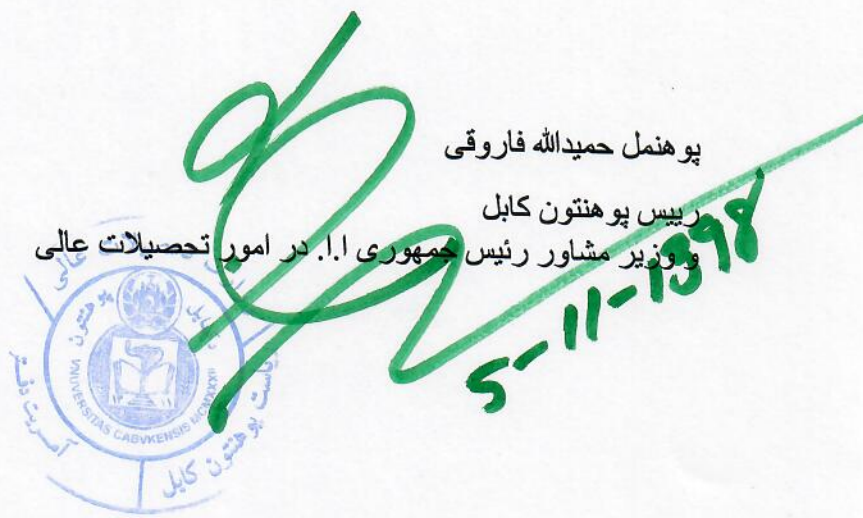 پوهنمل حمیدالله فاروقی
رییس پوهنتون کابل
و وزیر مشاور رئیس جمهوری ا.ا. در امور تحصیلات عالی
5-11-1398
پوهنتون کابل
VNIVERSITAS CABVKENSIS MCMXXXII
ریاست پوهنتون کابل
آمریت دفتر